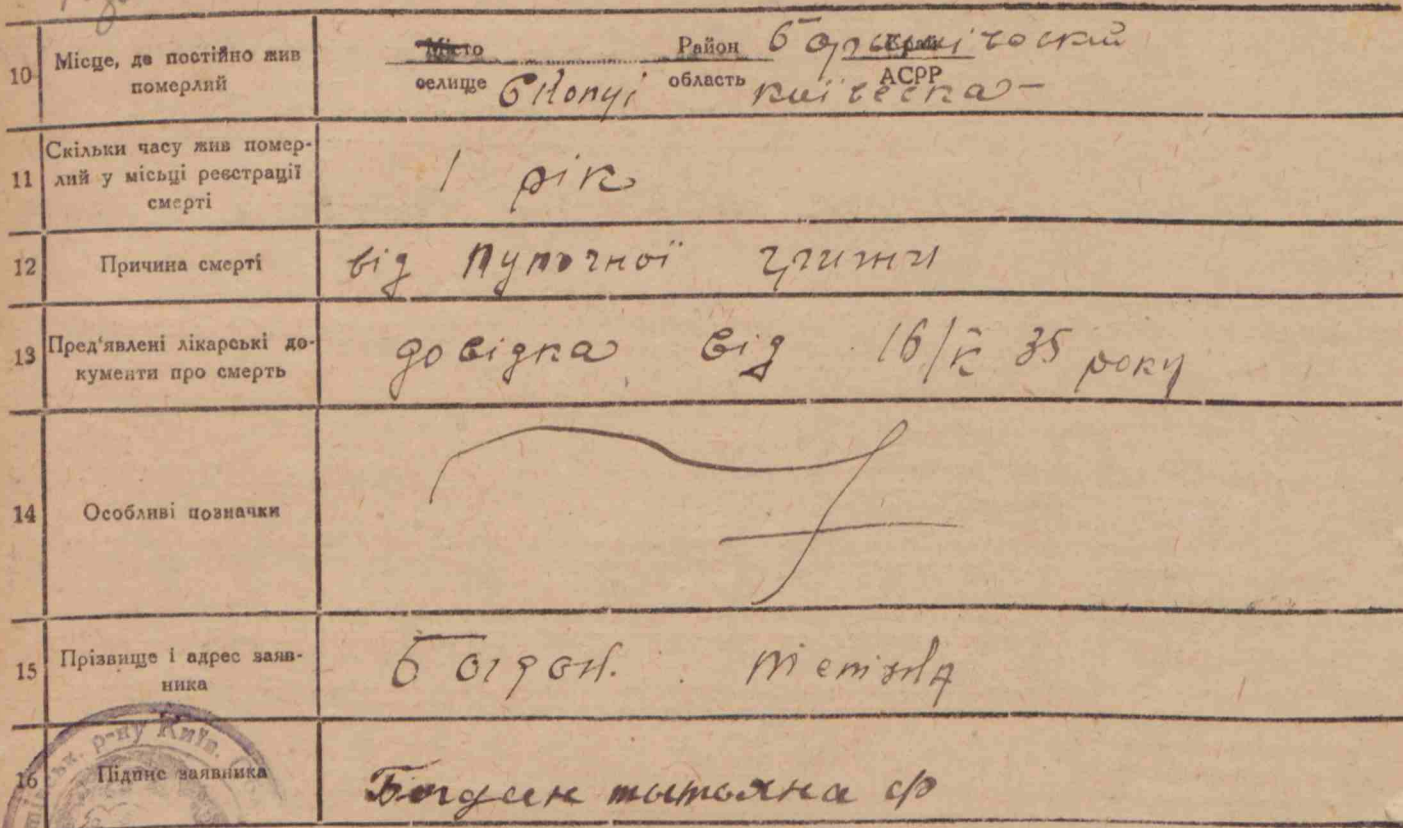 10 Місце, де постійно жив померлий
Місто Район Край
селище область АСРР
11 Скільки часу жив помер-
лий у місьці реєстрації
смерті
1 рік
12 Причина смерті
від Пупочної грижи
13 Пред'явлені лікарські до-
кументи про смерть
довідка від 16/ 35 року
14 Особливі позначки
15 Прізвище і адрес заяв-
ника
Богдан.
16 Підпис заявника
Богдан тытяна ф
р-ну Київ.